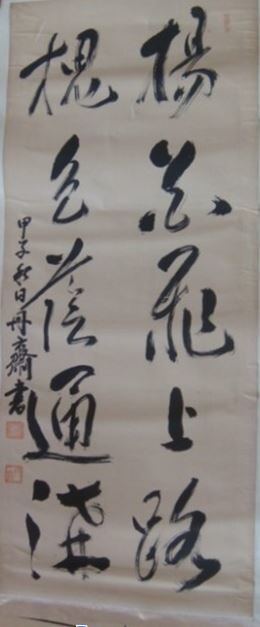 楊花飛上路
槐色蔭通溝
甲子秋日丹齋書